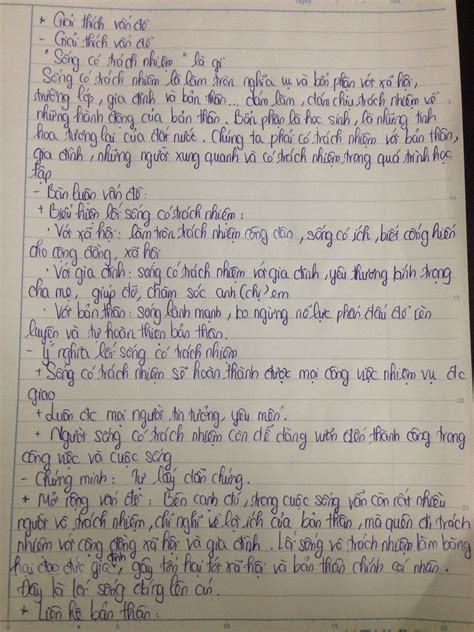 + Giải thích vấn đề
- Giải thích vấn đề
"Sống có trách nhiệm" là gì
Sống có trách nhiệm là làm tròn nghĩa vụ và bổn phận với xã hội,
trường lớp, gia đình và bản thân... dám làm, dám chịu trách nhiệm về
những hành động của bản thân. Bổn phận là học sinh, là những tinh
hoa tương lai của đất nước. Chúng ta phải có trách nhiệm với bản thân,
gia đình, những người xung quanh và có trách nhiệm trong quá trình học
tập
- Bàn luận vấn đề:
+ Biểu hiện lối sống có trách nhiệm:
· Với xã hội: làm tròn trách nhiệm công dân, sống có ích, biết cống hiến
cho cộng đồng, xã hội
· Với gia đình: sống có trách nhiệm với gia đình, yêu thương kính trọng
cha mẹ, giúp đỡ, chăm sóc anh (chị) em
· Với bản thân: sống lành mạnh, ko ngừng nỗ lực phấn đấu để rèn
luyện và tự hoàn thiện bản thân.
- Ý nghĩa lối sống có trách nhiệm
+ Sống có trách nhiệm sẽ hoàn thành được mọi công việc nhiệm vụ đc
giao
+ Luôn đc mọi người tin tưởng, yêu mến.
+ Người sống có trách nhiệm còn dễ dàng vươn đến thành công trong
công việc và cuộc sống
- Chứng minh: Tự lấy dẫn chứng.
+ Mở rộng vấn đề: Bên cạnh đó, trong cuộc sống vẫn còn rất nhiều
người vô trách nhiệm, chỉ nghĩ về lợi ích của bản thân, mà quên đi trách
nhiệm với cộng đồng xã hội và gia đình. Lối sống vô trách nhiệm làm băng
hoại đạo đức gia đình, gây tổn hại tới xã hội và bản thân chính cá nhân.
Đây là lối sống đáng lên án.
+ Liên hệ bản thân: